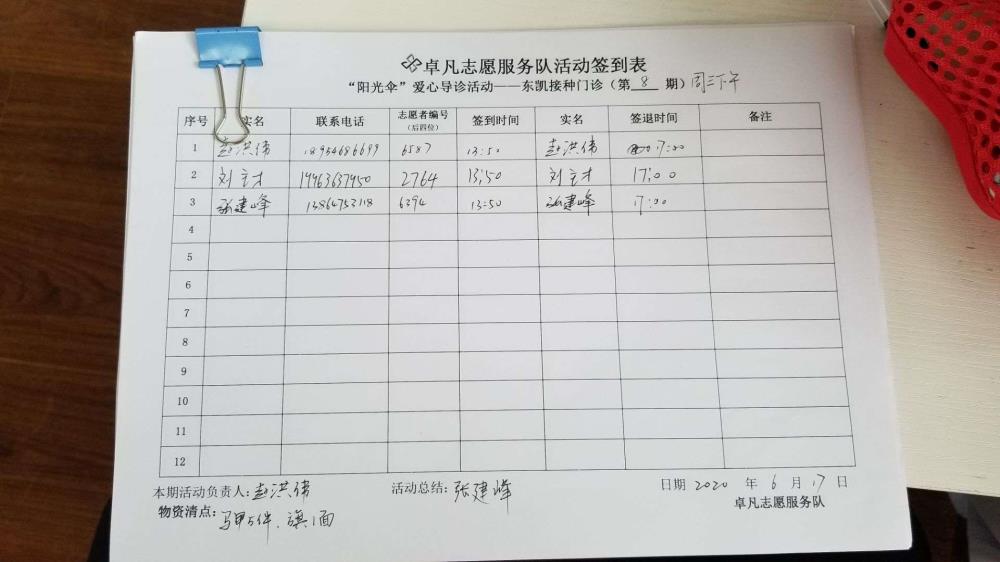 卓凡志愿服务队活动签到表
“阳光伞”爱心导诊活动——东凯接种门诊（第 8 期）周三下午
序号 实名 联系电话 志愿者编号（后四位） 签到时间 实名 签退时间 备注
1 赵洪伟 18954686699 6587 13:50 赵洪伟 17:00
2 刘立才 19963637950 2764 13:50 刘立才 17:00
3 张建峰 13864753118 6394 13:50 张建峰 17:00
4
5
6
7
8
9
10
11
12
本期活动负责人：赵洪伟 活动总结：张建峰 日期 2020 年 6 月 17 日
物资清点：马甲5件、旗1面 卓凡志愿服务队